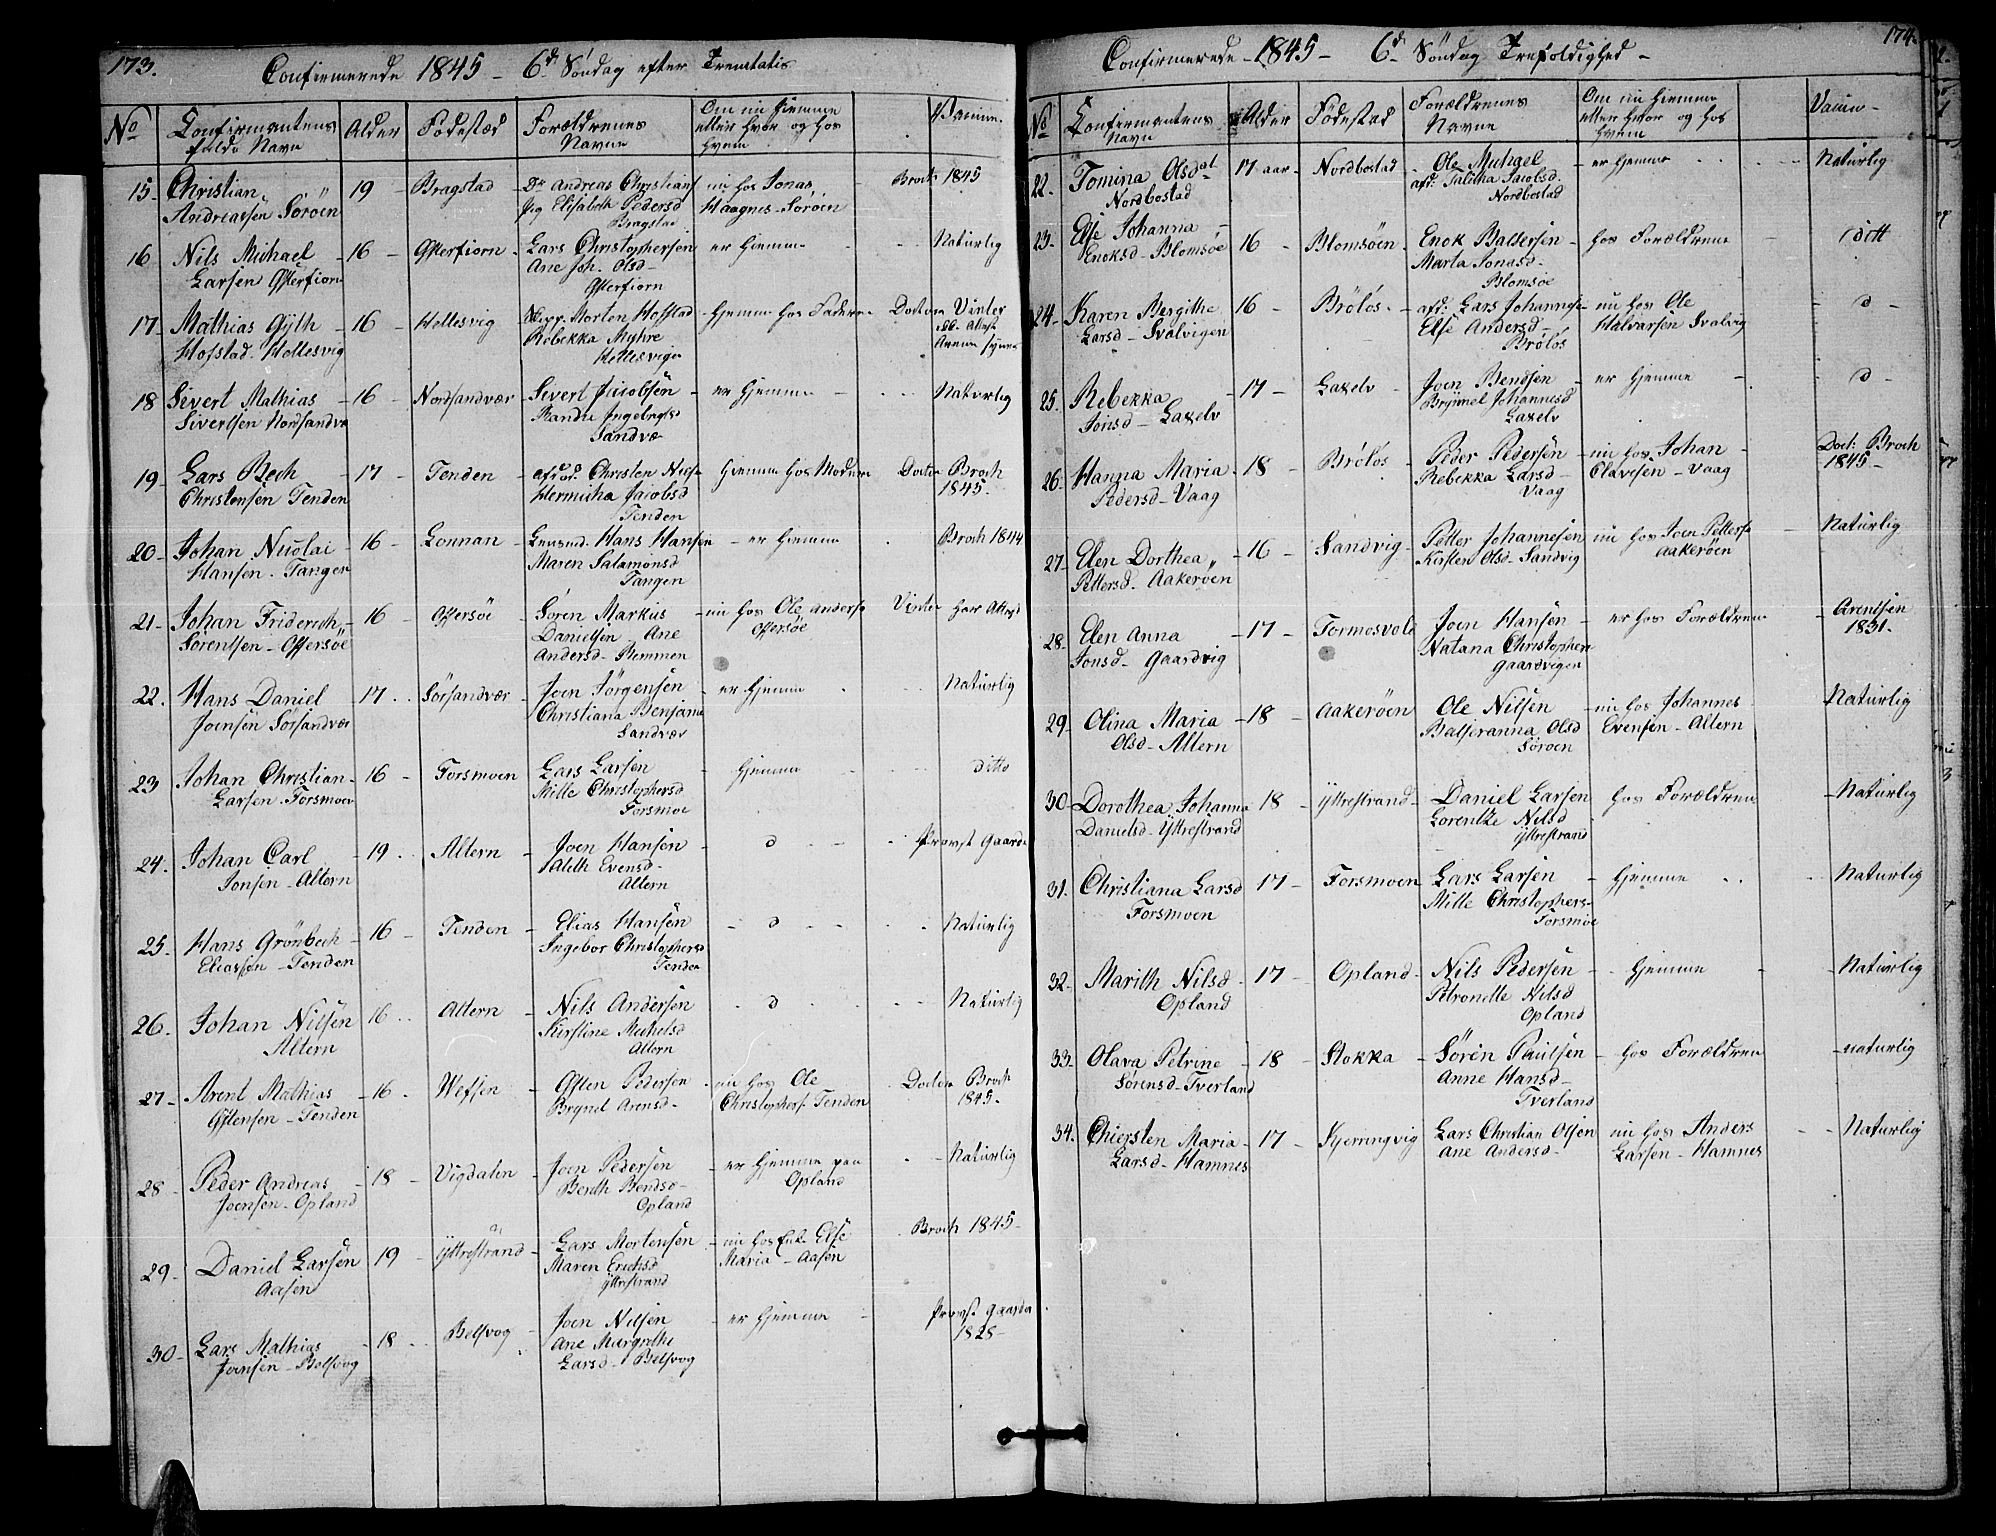 173.
Confirmerede 1845 - 6d. Söndag efter Trenitatis
No
Confirmantens fulde Navn
Alder
Födestæd
Forældrenes Navne
Om nu hiemme eller hvor og hos hvem
Vaccine.
15- Christian Andreassen Söröen 19 - Bragstad - Dr Andreas Christians Pig Elisabeth Pedersd Bragstad nu hos Jonas Haagnes - Söröen Broch 1845
16 Nils Michael Larsen Offerfiorn 16 - Offerfiorn - Lars Christophersen Ane Joh. Olsd - Offerfiorn er hiemme - Naturlig
17- Mathias Gjth Hofstad. Hellesvig - 16 - Hellesvig Morten Hofstad Rebekka Myhre Hellesvigen - hjemme hos Faderen - Doctor Vinter
18 Sivert Mathias Sivertsen Nordsandvæ - 16 - Nordsandvær - Sivert Jacobsen Randu Ingebrgts Sandvæ - er hjemme - Naturlig
19- Lars Bech Christensen Tenden - 17 - Tenden - afdød. Christen Nils Hermicha Jacobsd Tenden hjemme hos Moderen Doctor Broch 1845.
20- Johan Nicolai Hansen. Tangen - 16 - Lonnan - Lensmd. Hans Hansen Maren Salamonsd Tangen - er hiemme Broch 1844
21- Johan Friderich Sörentsen - Offersöe - 16 - Offersöe - Sören Markus Danielsen - Ane Andersd - Remmen - nu hos Ole Anders Offersöe Vinter
22. Hans Daniel Joensen Sorsandvær 17.. Sörsandvær - Joen Jörgensen Christiana Benjam Sandvær - er hjemme Naturlig
23 Johan Christian Larsen. Forsmoen - 16 - Forsmoen Lars Larsen Mille Christophersd Forsmoe - hjemme ditto
24. Johan Carl Jonsen - Altern - 19.. Altern - Joen Hansen Alith Evensd - Altern - d - Provst Gaarde
25. Hans Grönbech Eliassen - Tenden - 16 - Tenden - Elias Hansen Ingebor Christophersd Tenden - d - Naturlig
26. Johan Nilsen Altern 16.. Altern - Nils Andersen Kirstine Michelsd Altern - d Naturlig
27- Arent Mathias Offensen - Tenden - 16 - Wefsen - Offen Pedersen Brynel Arensd - nu hos Ole Christophers. Tenden Doctor Broch 1845-
28 - Peder Andreas Joensen - Opland - 18 - Vigdalen - Joen Pedersen Berith Bendsd - Opland - er hjemme paa Opland - Naturlig
29- Daniel Larsen Aasen 19 - Yttrestrand - Lars Mortensen Maren Erichsd Yttrestrand - nu hos Enk. Else Maria - Aasen Broch 1845-
30- Lars Mathias Joensen - Belsvog - 18 .. Belsvog - Joen Nilsen Ane Margrethe Larsd - Belsvog - er hjemme Provst Gaarde 1828-
174.
Confirmerede - 1845 - 6d. Söndag Trefoldighed -
No
Confirmantens Navn
Alder
Födestad
Forældrenes Navne
Om nu hiemme eller hvor og hos hvem
Vaccin -
22- Tomina Olsdat Nordbostad 17 aar - Nordbostad - Ole Michael afd. Talitha Jacobsd. Nordbostad - er hjemme Naturlig
23- Else Johanna Enoksd - Blomsöe - 16 - Blomsöen - Enok Baltersen Marta Jonasd - Blomsöe - hos Forældrene - ditt
24- Karen Bergithe Larsd - Svalvigen 16 - Brölös. - afd: Lars Johannes Else Andersd - Brölös nu hos Ole Halvarsen Svalvig - d -
25. Rebekka Jonsd - Laxelv - 17 - Laxelv - Joen Bendsen Brynnel Johannesd Laxelv - er hjemme - - d -
26- Hanna Maria Pedersd - Vaag - 18 - Brölös - Peder Pedersen Rebekka Larsd - Vaag - nu hos Johan Olavesen - Vaag Doct: Broch 1845-
27- Elen Dorthea Pettersd - Aakeröen - 16 - Sandvig - Petter Johannesen Kirsten Olsd - Sandvig nu hos Joen Petters Aakeröen - Naturlig
28- Elen Anna Jonsd - Gaardvig - 17 - Formosvold Joen Hansen Natana Christophers Gaardvigen - er hos Forældren - Arentsen 1831.
29- Olina Maria Olsd - Altern - 18 - Aakeröen Ole Nilsen Balseranna Olsd Söröen - nu hos Johannes Evensen - Altern Naturlig
30- Dorothea Johanna Danielsd - Yttrestrand 18 - Yttrestrand - Daniel Larsen Lorentze Nilsd Yttrestrand hos Forældren - Naturlig
31. Christiana Larsd Forsmoen 17 - Forsmoen Lars Larsen Mille Christophers- Forsmoe - hjemme - Naturlig
32- Marith Nilsd Opland 17 - Opland - Nils Pedersen Petronelle Nilsd Opland - hjemme - Naturlig
33- Olava Petrine Sörensd - Tverland - 18 - Stokka - Sören Paulsen Anne Hansd - Tverland - hos Forældren - naturlig
34. Chiersten Maria Larsd - Hamnes - 17 - Kjerringvig - Lars Christian Olsen Ane Andersd - nu hos Anders Larsen - Hamnes - Naturlig